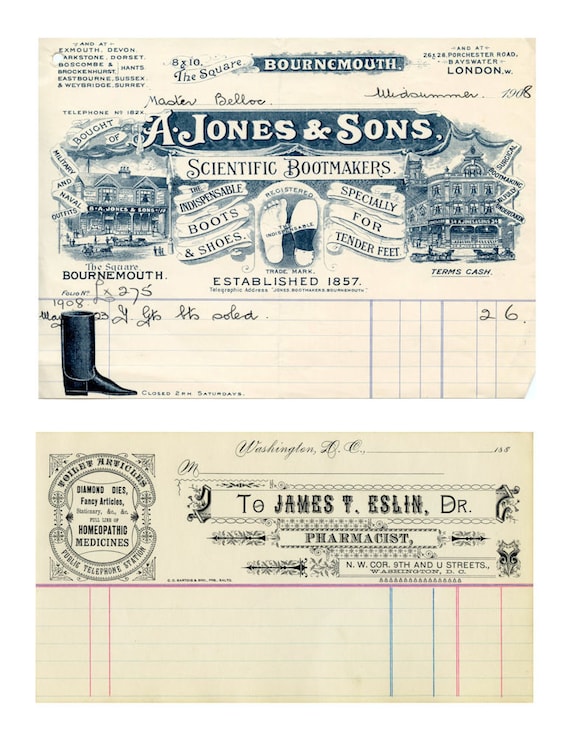 AND AT
EXMOUTH, DEVON.
PARKSTONE, DORSET.
BOSCOMBE & BROCKENHURST, HANTS.
EASTBOURNE, SUSSEX
& WEYBRIDGE, SURREY
8 X 10,
The Square
BOURNEMOUTH
AND AT
26 & 28, PORCHESTER ROAD,
BAYSWATER
LONDON. W.
Master Belloc. Midsummer. 1908
TELEPHONE No 182X.
BOUGHT OF
A. JONES & SONS.
SCIENTIFIC BOOTMAKERS.
MILITARY AND NAVAL OUTFITS
THE INDISPENSABLE BOOTS & SHOES.
REGISTERED
THE INDISPENSABLE
TRADE MARK.
SPECIALLY FOR TENDER FEET.
SURGICAL BOOTMAKING SKILFULLY UNDERTAKEN
A. JONES & SONS
The Square
BOURNEMOUTH.
TERMS CASH.
ESTABLISHED 1857.
Telegraphic Address "JONES, BOOTMAKERS, BOURNEMOUTH"
FOLIO No 275
1908
May 23 soled. 2 6.
CLOSED 2 P.M. SATURDAYS.
Washington, D. C., 188
M
TOILET ARTICLES
DIAMOND DIES,
Fancy Articles,
Stationary, &c., &c.
FULL LINE OF
HOMEOPATHIC
MEDICINES
PUBLIC TELEPHONE STATION
To JAMES T. ESLIN, DR.
PHARMACIST,
N. W. COR. 9TH AND U STREETS,
WASHINGTON, D. C.